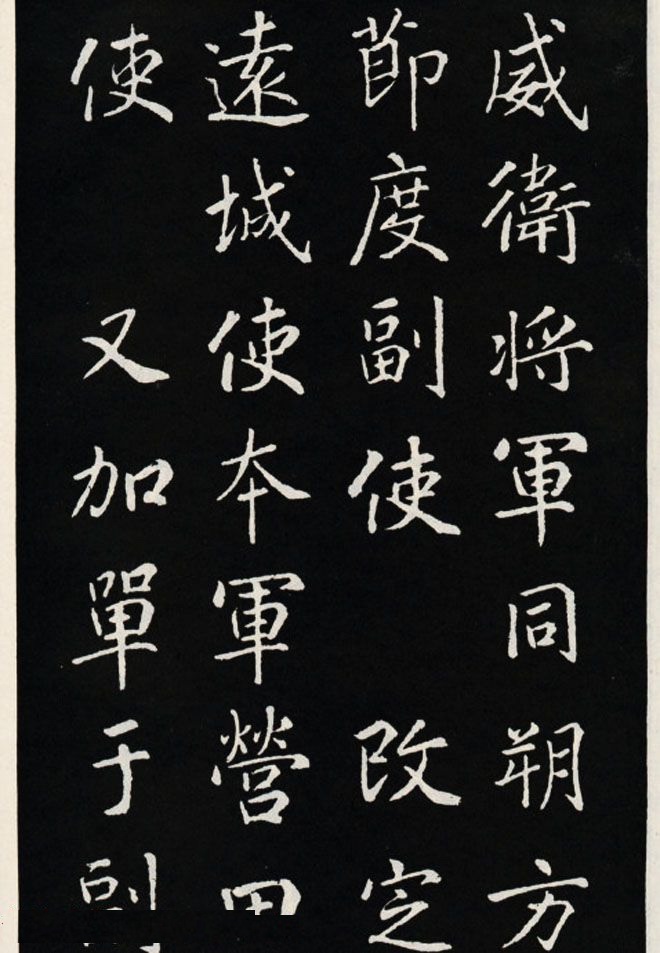 威衛將軍同朔方
節度副使 改定
遠城使本軍營田
使 又加單于副